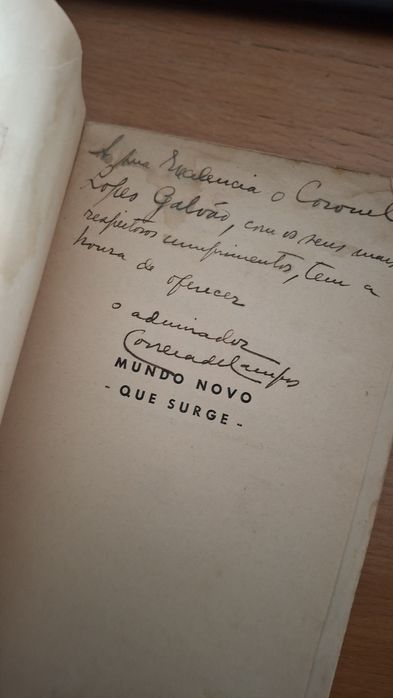 A Sua Exalencia o Coronel
Lopes Galvão, com os seus mais
respeitosos cumprimentos, tem a
honra de oferecer
o admirador
Correia de Campos
MUNDO NOVO
- QUE SURGE -